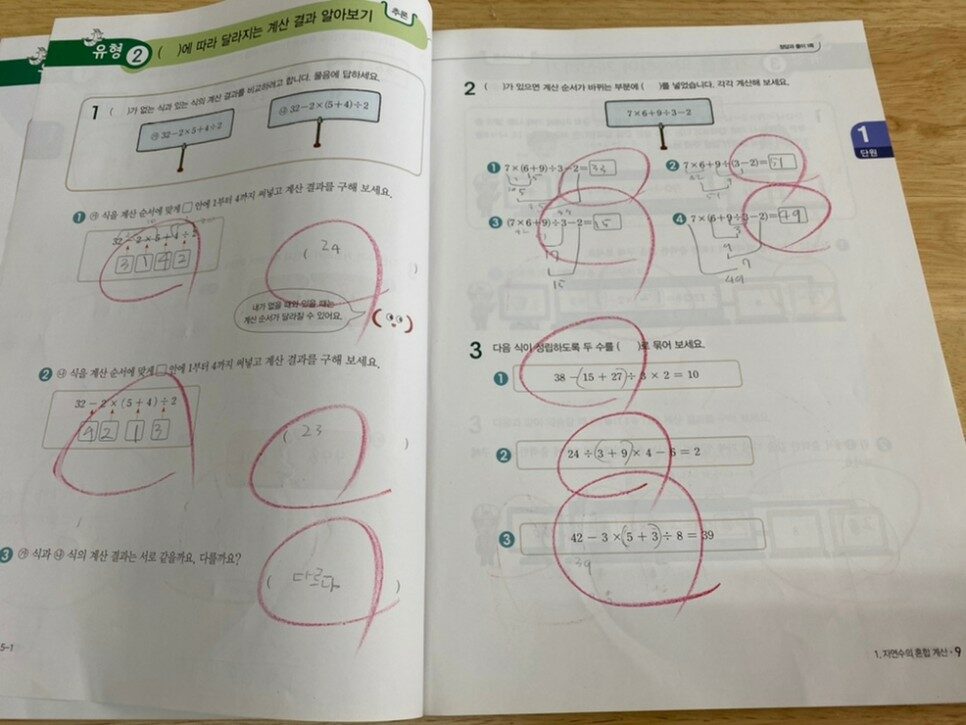 유형 2 ( )에 따라 달라지는 계산 결과 알아보기
추론
1 ( )가 없는 식과 있는 식의 계산 결과를 비교하려고 합니다. 물음에 답하세요.
㉮ 32-2×5+4÷2
㉯ 32-2×(5+4)÷2
1 ㉮ 식을 계산 순서에 맞게 □ 안에 1부터 4까지 써넣고 계산 결과를 구해 보세요.
32-2×5+4÷2
3 1 4 2
( 24 )
내가 없을 때와 있을 때는
계산 순서가 달라질 수 있어요.
2 ㉯ 식을 계산 순서에 맞게 □ 안에 1부터 4까지 써넣고 계산 결과를 구해 보세요.
32-2×(5+4)÷2
4 2 1 3
( 23 )
3 ㉮ 식과 ㉯ 식의 계산 결과는 서로 같을까요, 다를까요?
( 다르다 )
5-1
정답과 풀이 1쪽
2 ( )가 있으면 계산 순서가 바뀌는 부분에 ( )를 넣었습니다. 각각 계산해 보세요.
7×6+9÷3-2
1 7×(6+9)÷3-2=33
2 7×6+9÷(3-2)=51
3 (7×6+9)÷3-2=15
4 7×(6+9÷3-2)=49
17
15
3
9
7
49
3 다음 식이 성립하도록 두 수를 ( )로 묶어 보세요.
1 38-(15+27)÷3×2=10
2 24÷(3+9)×4-6=2
3 42-3×(5+3)÷8=39
39
1
단원
1. 자연수의 혼합 계산·9